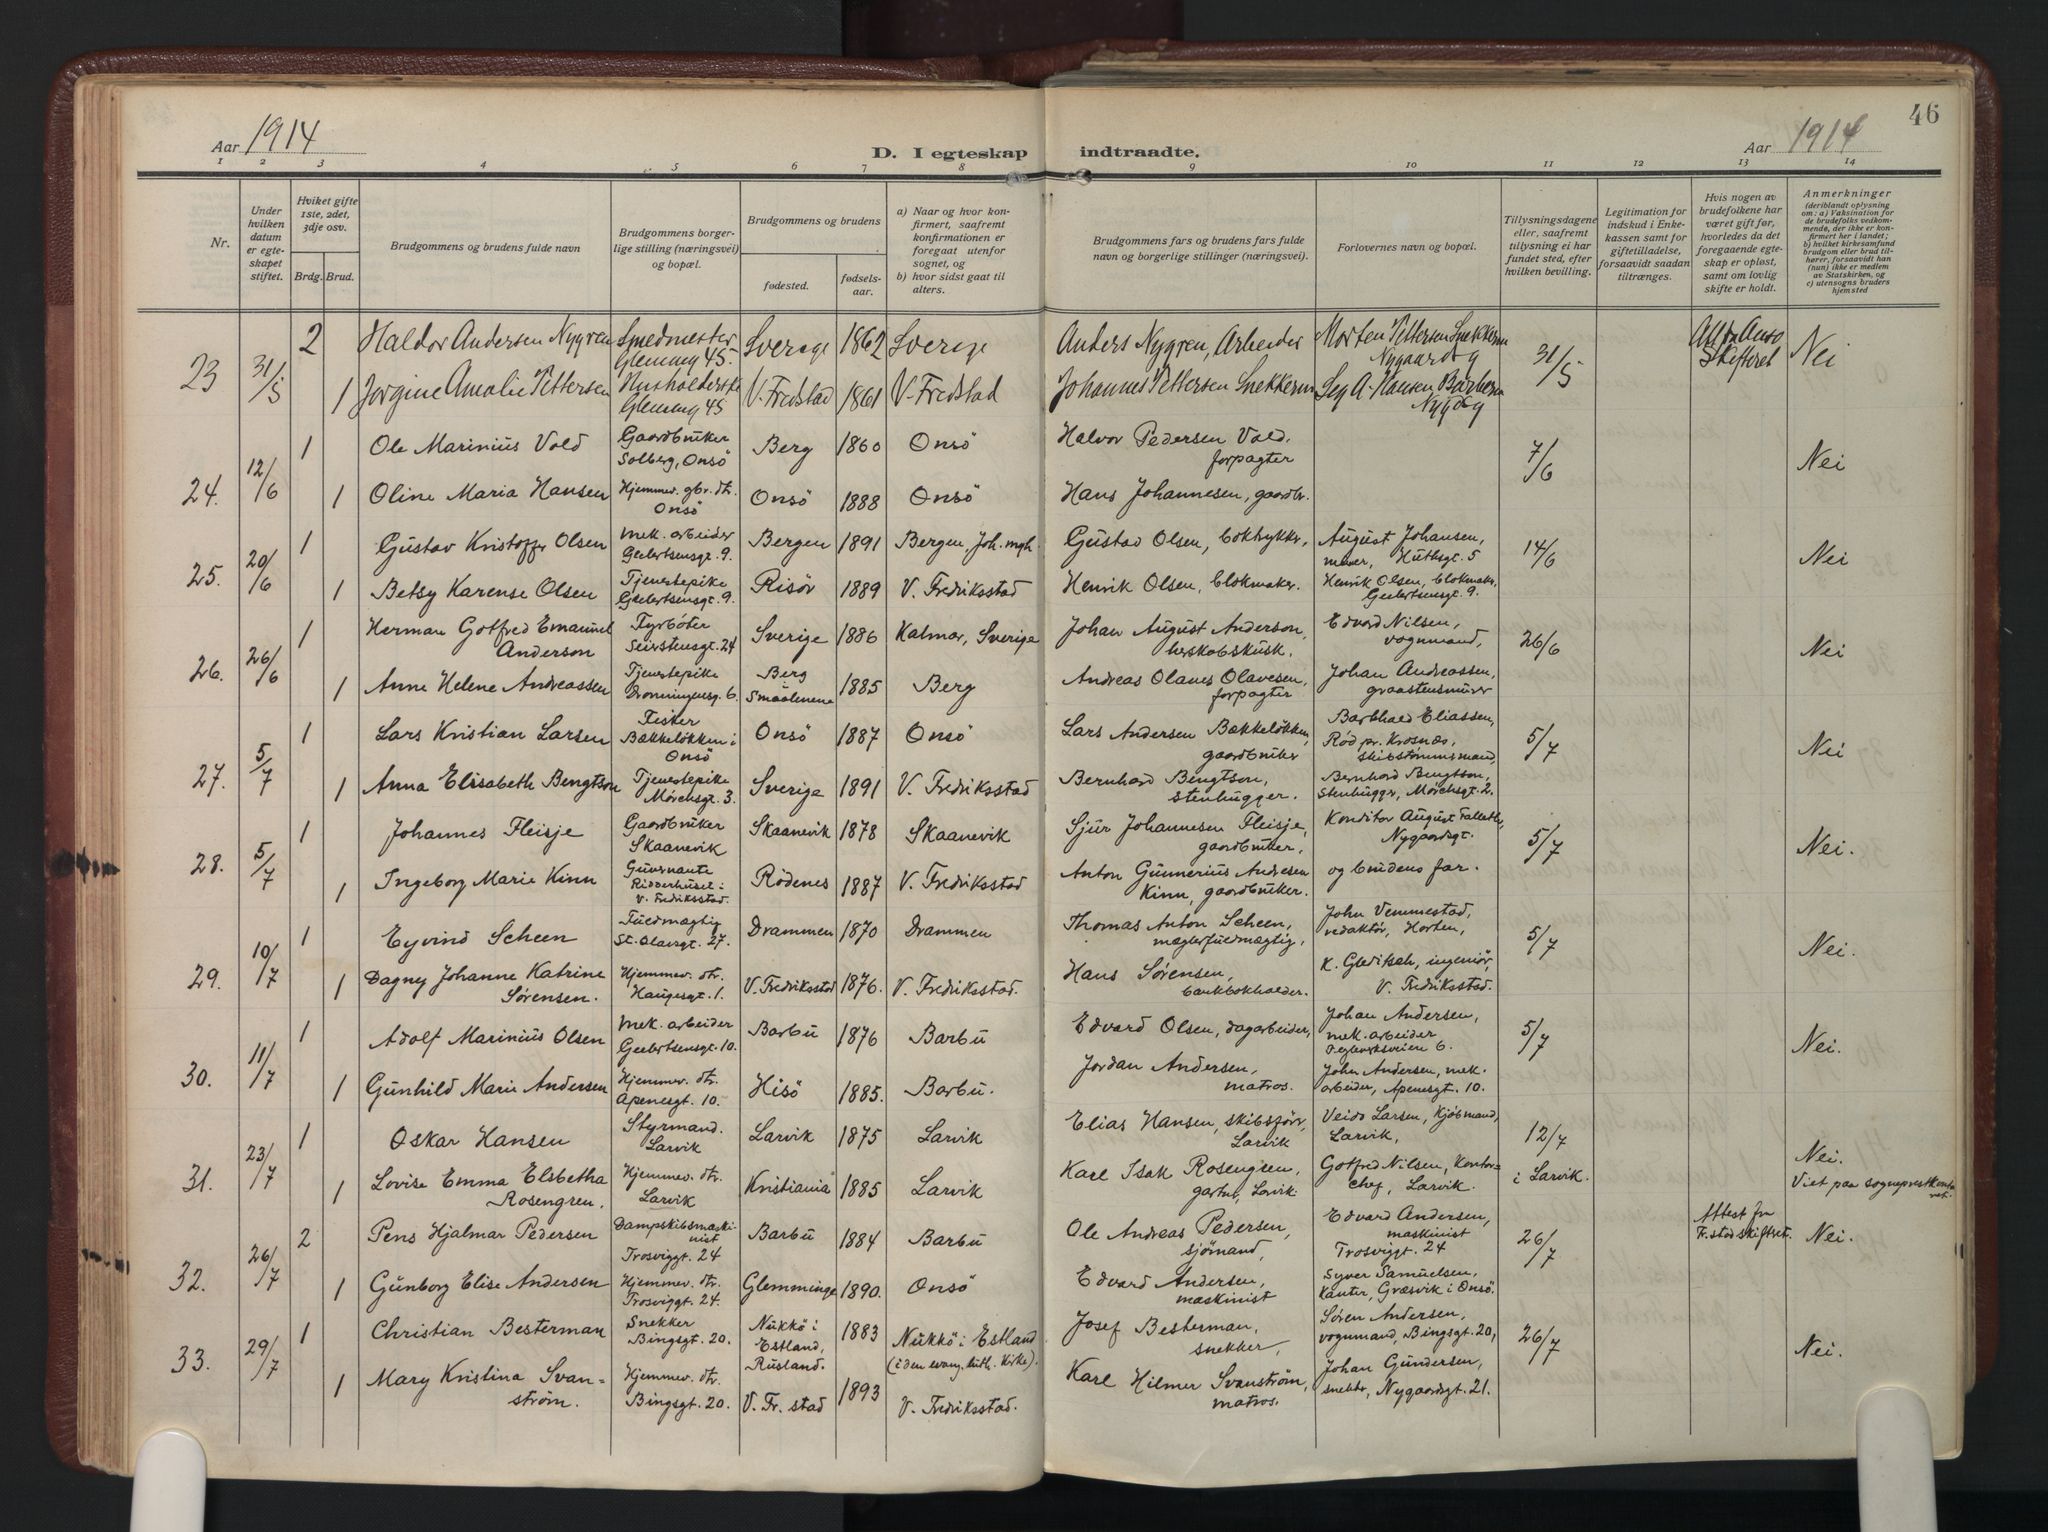 Aar 1914
D. I egteskap indtraadte.
Aar 1914
46
1 2 3 4 5 6 7 8 9 10 11 12 13 14
Nr.
Under hvilken datum er egteskapet stiftet.
Hviket gifte 1ste, 2det, 3dje osv.
Brdg. Brud.
Brudgommens og brudens fulde navn
Brudgommens borgerlige stilling (næringsvei) og bopæl.
Brudgommens og brudens
fødested.
fødselsaar.
a) Naar og hvor konfirmert, saafremt konfirmationen er foregaat utenfor sognet, og
b) hvor sidst gaat til alters.
Brudgommens fars og brudens fars fulde navn og borgerlige stillinger (næringsvei).
Forlovernes navn og bopæl.
Tillysningsdagene eller, saafremt tillysning ei har fundet sted, efter hvilken bevilling.
Legitimation for indskud i Enkekassen samt for giftetilladelse, forsaavidt saadan tiltrænges.
Hvis nogen av brudefolkene har været gift før, hvorledes da det foregaaende egteskap er opløst, samt om lovlig skifte er holdt.
Anmerkninger
(deriblandt oplysning om: a) Vaksination for de brudefolks vedkommende, der ikke er konfirmert her i landet; b) hvilket kirkesamfund brudgom eller brud tilhører, forsaavidt han (hun) ikke er medlem av Statskirken, og c) utensogns bruders hjemsted
23 31/5 2 Haldor Andersen Nygren Smedmester Glemmeng 45. Sverige 1862 Sverige Anders Nygren, Arbeider Morten Pettersen Snekker Nygaardsg 31/5 Skifteret Nei
1 Jørgine Amalie Pettersen Glemmeng 45 V. Fredstad 1861 V. Fredstad Johannes Pettersen Snekker A. Hansen Nygdsg
24. 12/6 1 Ole Marinius Vold Gaardbruker Solberg, Onsö Berg 1860 Onsö Halvor Pedersen Vold, forpagter 7/6 Nei
1 Oline Maria Hansen Hjemmev. gbr. dtr. Onsö Onsö 1888 Onsö Hans Johannesen, gaardbr.
25. 20/6 1 Gustav Kristoffer Olsen Mek. arbeider Geelertsensgt. 9. Bergen 1891 Bergen, Joh. mgh. Gustav Olsen, boktrykker, August Johansen, murer, Huthsgt. 5 14/6 Nei
1 Betsy Karense Olsen Tjenestepike Geelertsensgt. 9. Risör 1889 V. Fredriksstad Henrik Olsen, blokmaker. Henrik Olsen, blokmaker Geelertsensgt. 9.
26. 26/6 1 Herman Gotfred Emanuel Anderson Fyrböter Seierstensgt. 24 Sverige 1886 Kalmar, Sverige Johan August Anderson, herskabskusk. Edvard Nilsen, vognmand, 26/6 Nei
1 Anne Helene Andreassen Tjenestepike Dronningensg. 6. Berg i Smaalenene 1885 Berg Andreas Olaves Olavesen, forpagter Johan Andreassen, graastensmurer
27. 5/7 1 Lars Kristian Larsen Fisker Bækkeløkken i Onsö Onsö 1887 Onsö Lars Andersen Bækkeløkken, gaardbruker Eliassen, Rød pr. Krosnæs, skibstømmermand, 5/7 Nei
1 Anna Elisabeth Bengtson Tjenestepike Mörchsgt. 3. Sverige 1891 V. Fredriksstad Bernhard Bengtson, stenhugger. Bernhard Bengtson, Stenhugger, Mörchsgt. 2.
28. 5/7 1 Johannes Fleisje Gaardbruker Skaanevik Skaanevik 1878 Skaanevik Sjur Johannesen Fleisje, gaardbruker. Konditor August Nygaardsgt. 5/7 Nei.
1 Ingeborg Marie Kinn Guvernante Ridderhuset i V. Fredriksstad. Rödenes 1887 V. Fredriksstad Anton Gunnerius Andresen Kinn, gaardbruker. og brudens far.
29. 10/7 1 Eyvind Scheen Fuldmægtig St. Olavsgt. 27. Drammen 1870 Drammen Thomas Anton Scheen, mæglerfuldmægtig, John Vemmestad, redaktør, Horten, 5/7 Nei.
1 Dagny Johanne Katrine Sørensen. Hjemmev. dtr. Haugesgt. 1. V. Fredriksstad 1876. V. Fredriksstad. Hans Sørensen, bankbokholder. K. Gleditsch, ingeniør, V. Fredriksstad.
30. 11/7 1 Adolf Marinius Olsen Mek. arbeider Geelertsensgt. 10. Barbu 1876 Barbu Edvard Olsen, dagarbeider, Johan Andersen, mek. arbeider Teglverksveien 6. 5/7 Nei.
1 Gunhild Marie Andersen Hjemmev. dtr. Apenesgt. 10. Hisö 1885. Barbu. Jordan Andersen, matros. John Andersen, mek. arbeider, Apenesgt. 10.
31. 23/7 1 Oskar Hansen Styrmand. Larvik Larvik 1875 Larvik Elias Hansen, skibsfører, Larvik Larsen, Kjöbmand, Larvik, 12/7 i Larvik. Nei.
1 Lovise Emma Elsbetha Rosengren. Hjemmev. dtr. Larvik Kristiania 1885 Larvik Karl Isak Rosengren, gartner, Larvik. Gotfred Nilsen, Kontorchef, Larvik. Viet paa sogneprestkontoret.
32. 26/7 2 Pens Hjalmar Pedersen Dampskibsmaskinist Trosviggt. 24 Barbu 1884 Barbu Ole Andreas Pedersen, sjömand, Edvard Andersen, maskinist Trosviggt. 24 26/7 Attest fra F.stad skifteret. Nei.
1 Gunborg Elise Andersen Hjemmev. dtr. Trosviggt. 24. Glemminge 1890. Onsö Edvard Andersen, maskinist Syver Samuelsen, Kanter, Græsvik i Onsö.
33. 29/7 1 Christian Besterman Snekker Bingsgt. 20. Nukkö i Estland, Rusland. 1883 Nukkö i Estland (i den evang. luth. Kirke). Josef Besterman, snekker, Søren Andersen, vognmand, Bingsgt. 20, 26/7 Nei.
1 Mary Kristina Svanström. Hjemmev. dtr. Bingsgt. 20. V. Fr. stad 1893 V. Fredriksstad. Karl Hilmer Svanström, matros. Johan Gundersen, snekker, Nygaardsgt. 21.